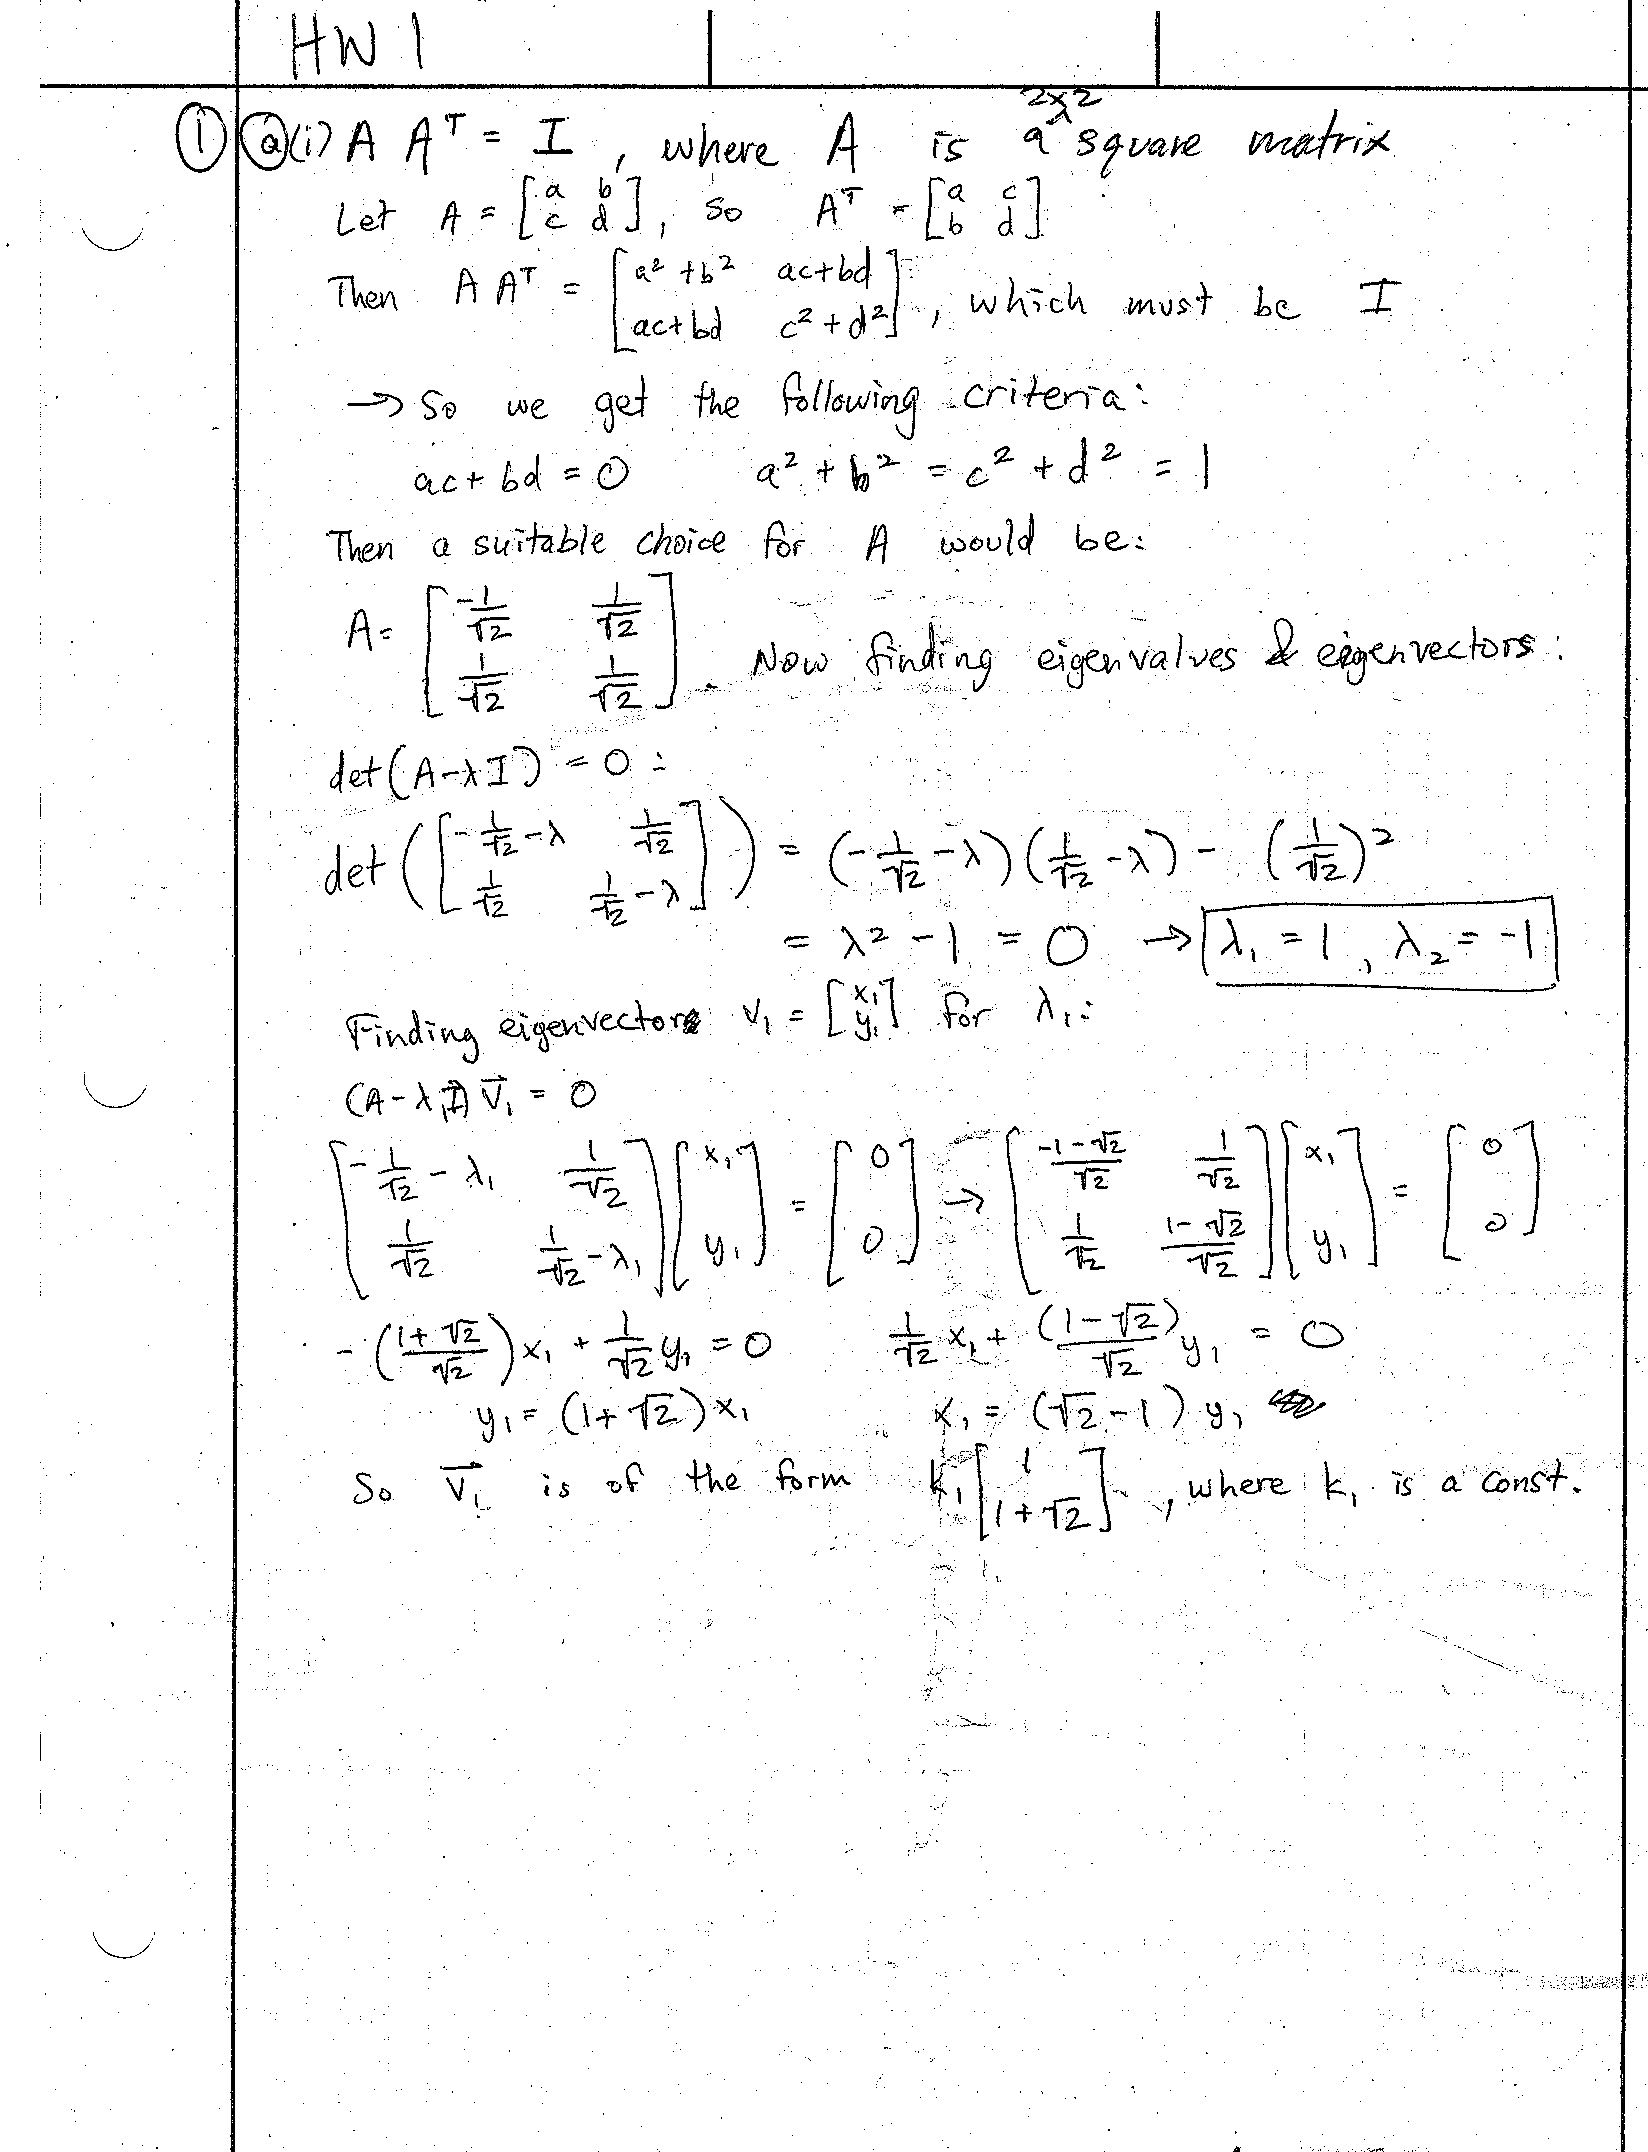 HW 1
① ⓐ(i) A Aᵀ = I , where A is a 2x2 square matrix
Let A = [a b; c d], so Aᵀ = [a c; b d]
Then A Aᵀ = [a² + b² ac+bd; ac+bd c² + d²], which must be I
→ So we get the following criteria:
ac + bd = 0 a² + b² = c² + d² = 1
Then a suitable choice for A would be:
A = [-1/√2 1/√2; 1/√2 1/√2]. Now finding eigenvalues & eigenvectors:
det(A-λI) = 0 :
det([-1/√2-λ 1/√2; 1/√2 1/√2-λ]) = (-1/√2-λ)(1/√2-λ) - (1/√2)²
= λ² - 1 = 0 → λ₁ = 1 , λ₂ = -1
Finding eigenvector v₁ = [x₁; y₁] for λ₁:
(A-λ₁I) v⃗₁ = 0
[-1/√2-λ₁ 1/√2; 1/√2 1/√2-λ₁][x₁; y₁] = [0; 0] → [(-1-√2)/√2 1/√2; 1/√2 (1-√2)/√2][x₁; y₁] = [0; 0]
-((1+√2)/√2)x₁ + 1/√2 y₁ = 0 1/√2 x₁ + ((1-√2)/√2)y₁ = 0
y₁ = (1+√2)x₁ x₁ = (√2-1) y₁
So v⃗₁ is of the form k₁[1; 1+√2], where k₁ is a const.